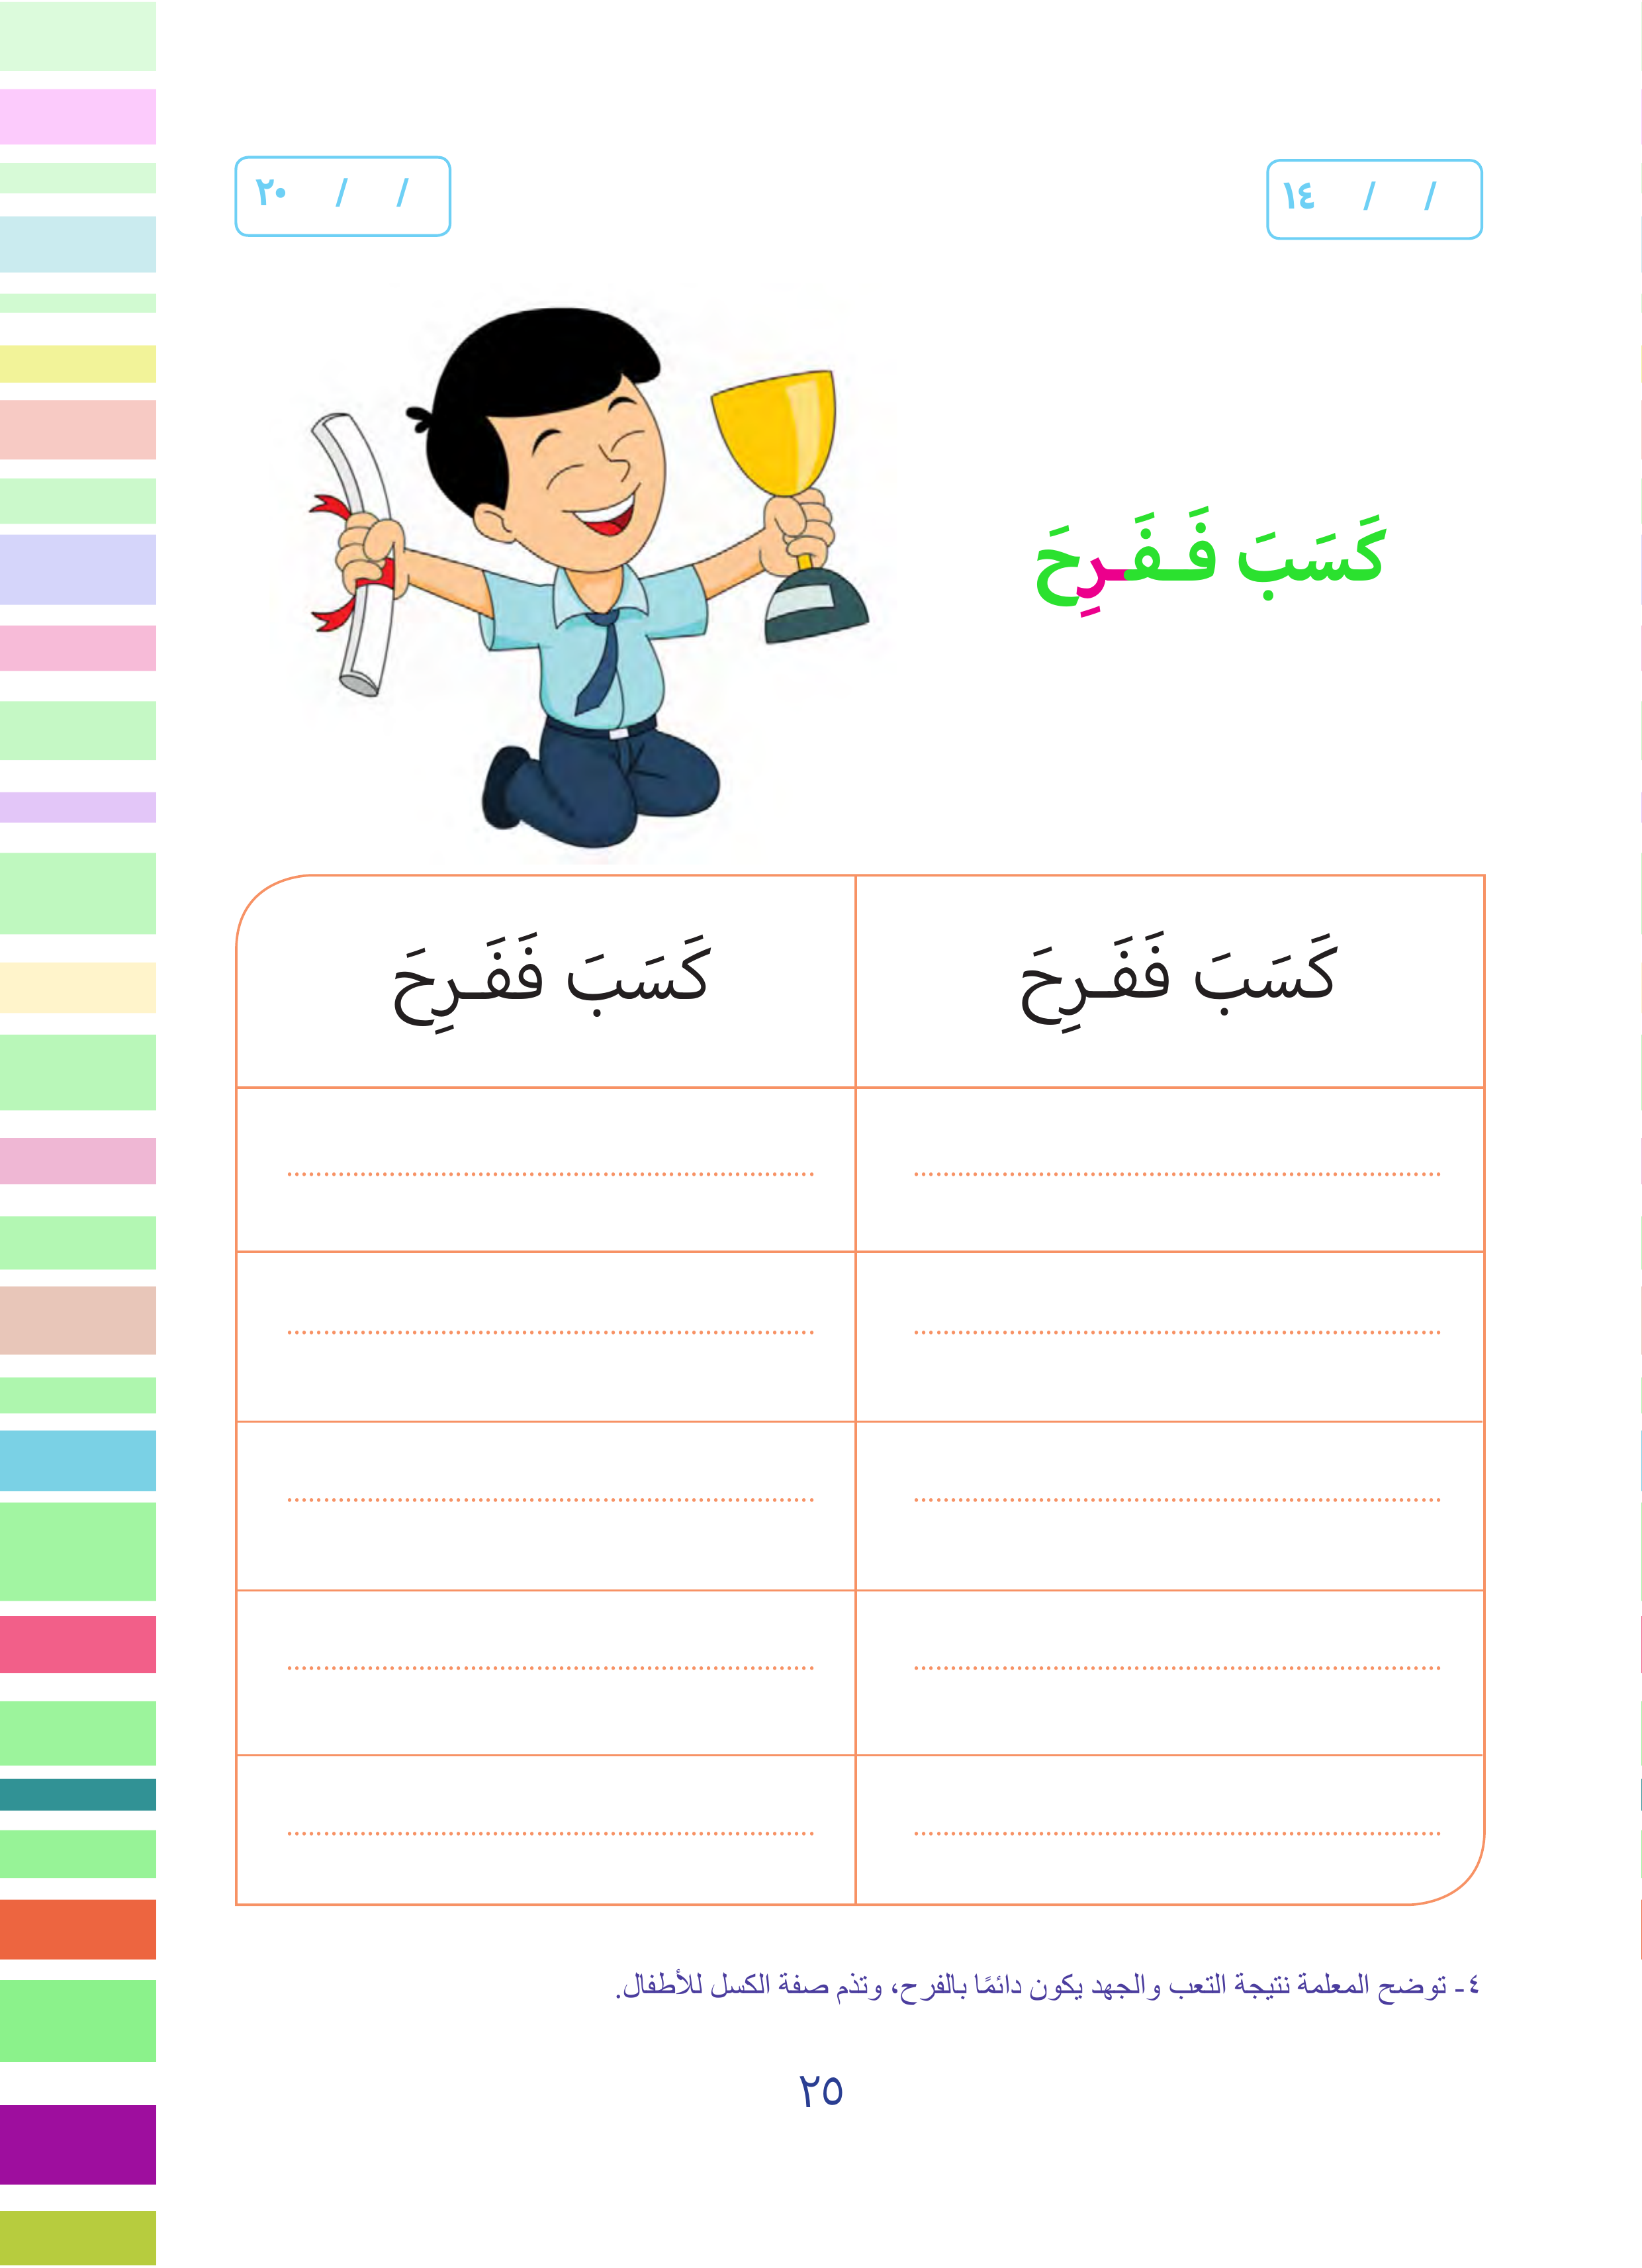 / / ١٤
/ / ٢٠
كَسَبَ فَـفَـرِحَ
كَسَبَ فَفَـرِحَ
كَسَبَ فَفَـرِحَ
٤- توضح المعلمة نتيجة التعب والجهد يكون دائمًا بالفرح، وتذم صفة الكسل للأطفال.
٢٥